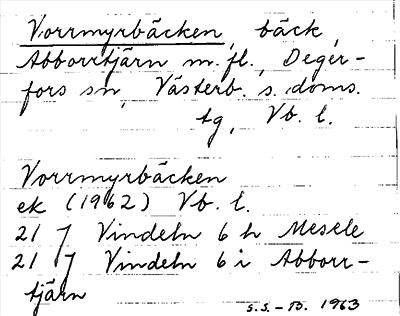 Vorrmyrbäcken, bäck,
Abborrtjärn m.fl., Deger-
fors sn, Västerb. s. doms.
tg, Vb. l.
Vorrmyrbäcken
ek (1962) Vb. l.
21 J Vindeln 6 h Mesele
21 J Vindeln 6 i Abborr-
tjärn
S.S.-B. 1963